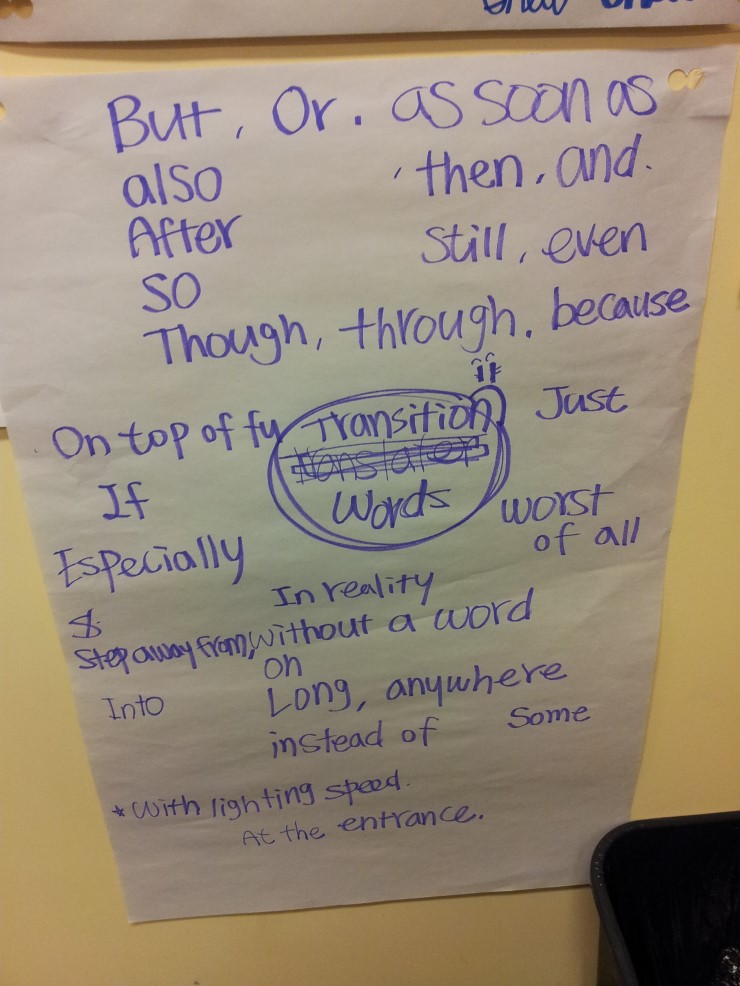 But, Or. as soon as
also 'then, and.
After Still, even
SO
Though, through, because
On top of fu Transition Just
If Words worst
of all
Especially
In reality
Step away from, without a word
on
Into Long, anywhere
instead of Some
* With lighting speed.
At the entrance.